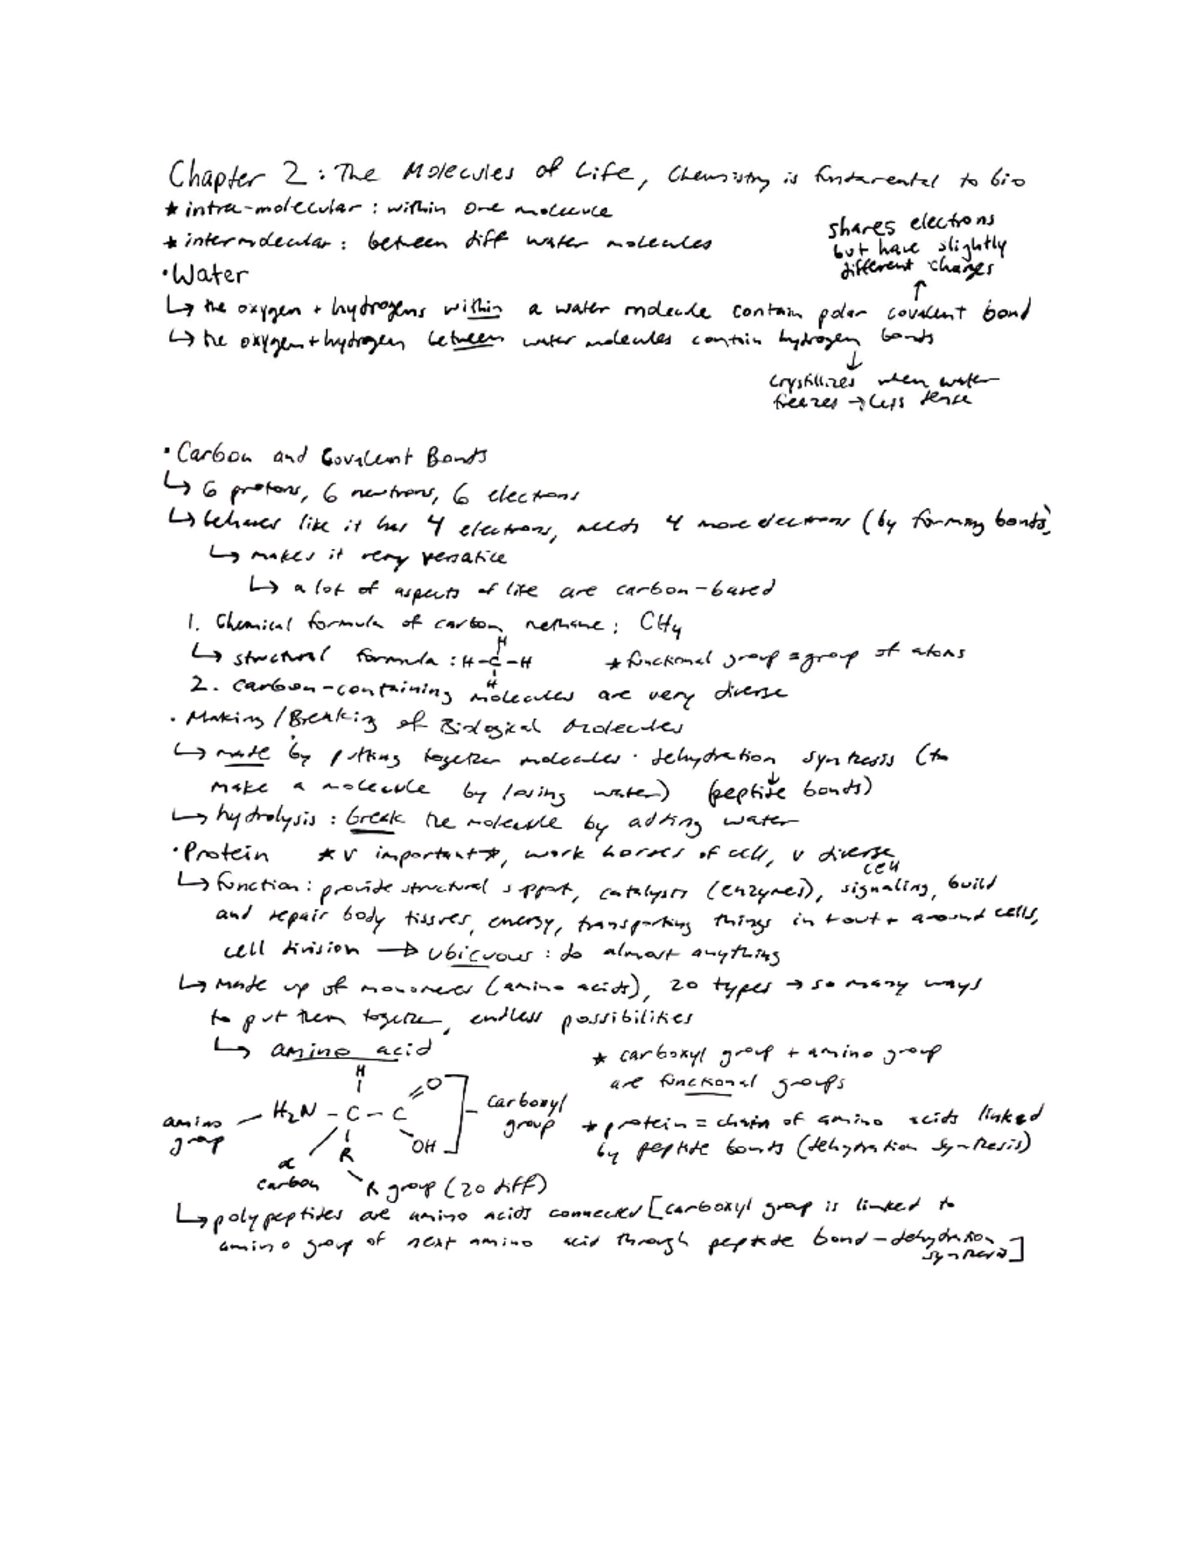 Chapter 2: The Molecules of Life, Chemistry is fundamental to bio
★ intra-molecular: within one molecule
★ intermolecular: between diff water molecules
shares electrons
but have slightly
different charges
↑
• Water
↳ the oxygen + hydrogens within a water molecule contain polar covalent bond
↳ the oxygen + hydrogen between water molecules contain hydrogen bonds
↓
crystillizes when water
freezes → less dense
• Carbon and Covalent Bonds
↳ 6 protons, 6 neutrons, 6 electrons
↳ behaves like it has 4 electrons, needs 4 more electrons (by forming bonds)
↳ makes it very versatile
↳ a lot of aspects of life are carbon-based
1. Chemical formula of carbon, methane: CH4
↳ structural formula: H-C-H
H
H
★ functional group = group of atoms
2. carbon-containing molecules are very diverse
• Making/Breaking of Biological Molecules
↳ made by putting together molecules • dehydration synthesis (to
make a molecule by losing water) (peptide bonds)
↳ hydrolysis: break the molecule by adding water
• Protein ★ v important ★, work horses of cell, v diverse
cell
↳ function: provide structural support, catalysts (enzymes), signaling, build
and repair body tissues, energy, transporting things in + out + around cells,
cell division → ubicuous: do almost anything
↳ Made up of monomers (amino acids), 20 types → so many ways
to put them together, endless possibilities
↳ amino acid
★ carboxyl group + amino group
are functional groups
H
amino group
H2N - C - C
O
OH
carboxyl group
★ protein = chain of amino acids linked
by peptide bonds (dehydration synthesis)
α carbon
R
R group (20 diff)
↳ polypeptides are amino acids connected [carboxyl group is linked to
amino group of next amino acid through peptide bond - dehydration
synthesis]